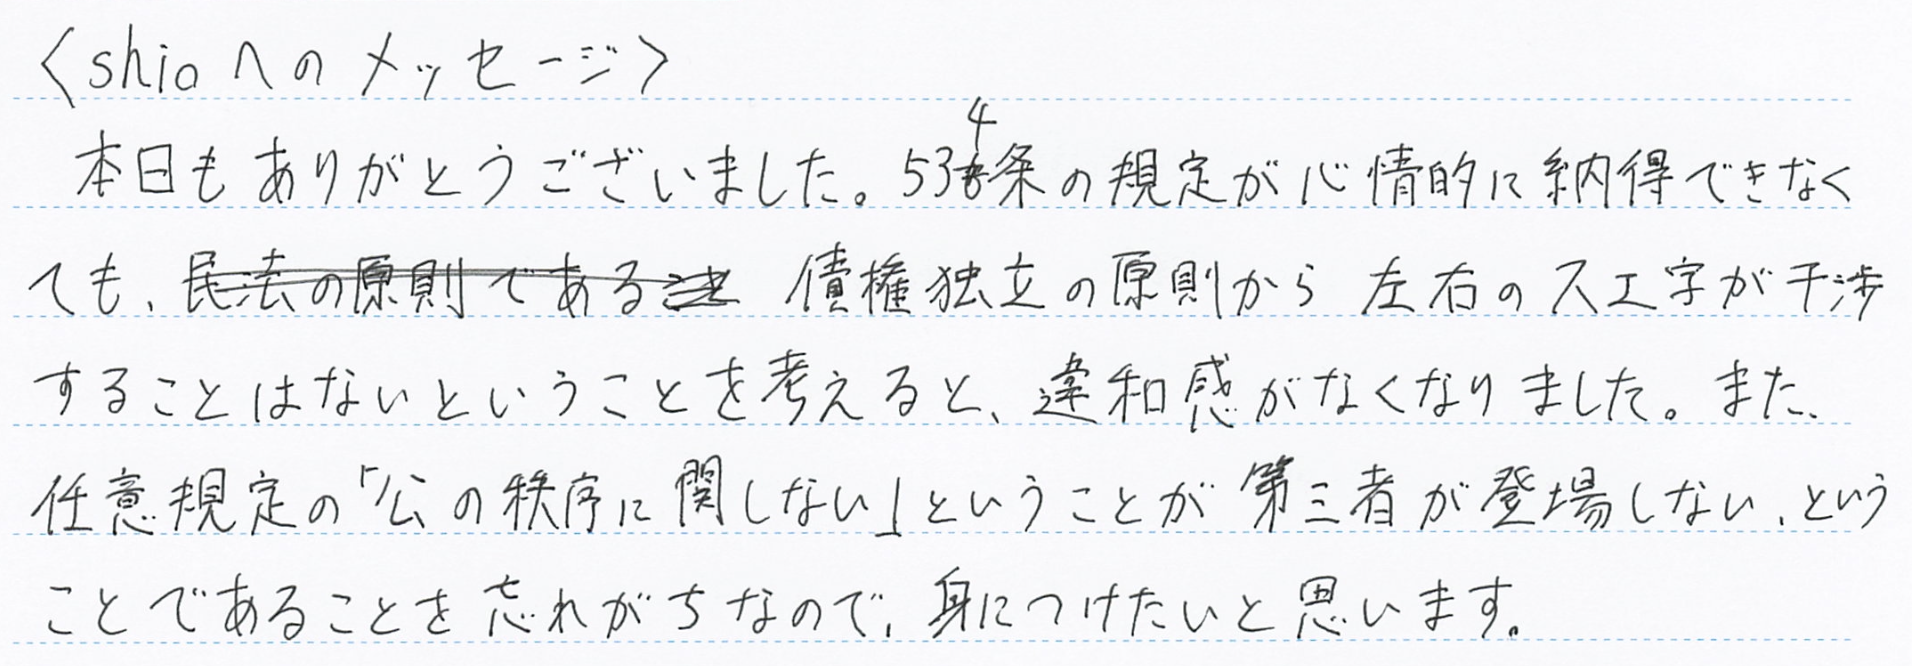 〈shioへのメッセージ〉
本日もありがとうございました。534条の規定が心情的に納得できなく
ても、民法の原則である 債権独立の原則から左右のスエ字が干渉
することはないということを考えると、違和感がなくなりました。また、
任意規定の「公の秩序に関しない」ということが第三者が登場しない、という
ことであることを忘れがちなので、身につけたいと思います。